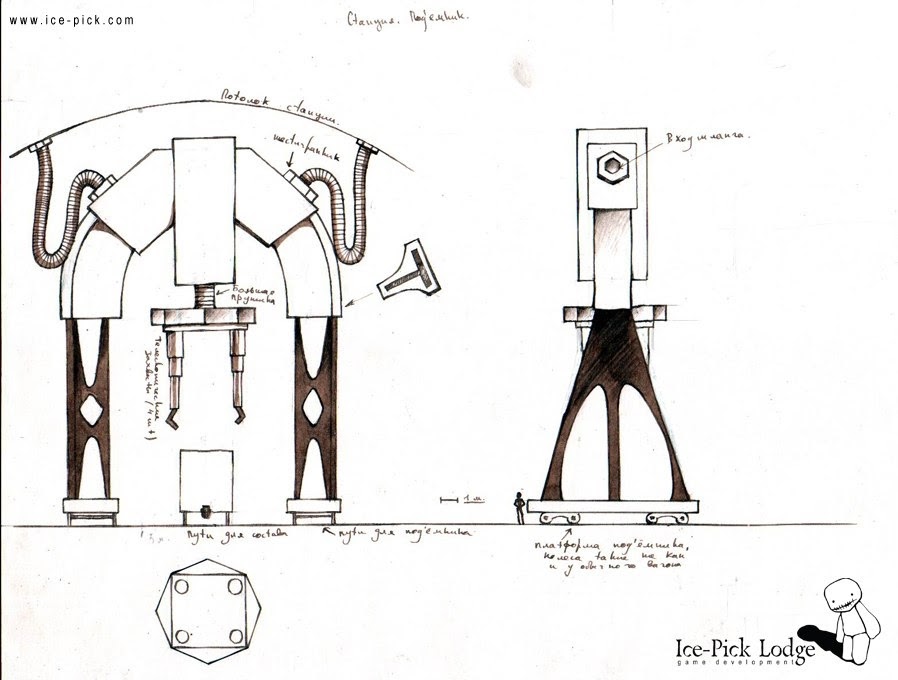 www.ice-pick.com
Станция. Подъемник.
Потолок станции.
шестигранник
Вход шланга.
Большая
пружина
Телескопические
захваты (4 шт)
1 м.
Пути для состава
пути для подъёмника
платформа подъёмника,
колеса такие же как
и у обычного вагона
Ice-Pick Lodge
game development